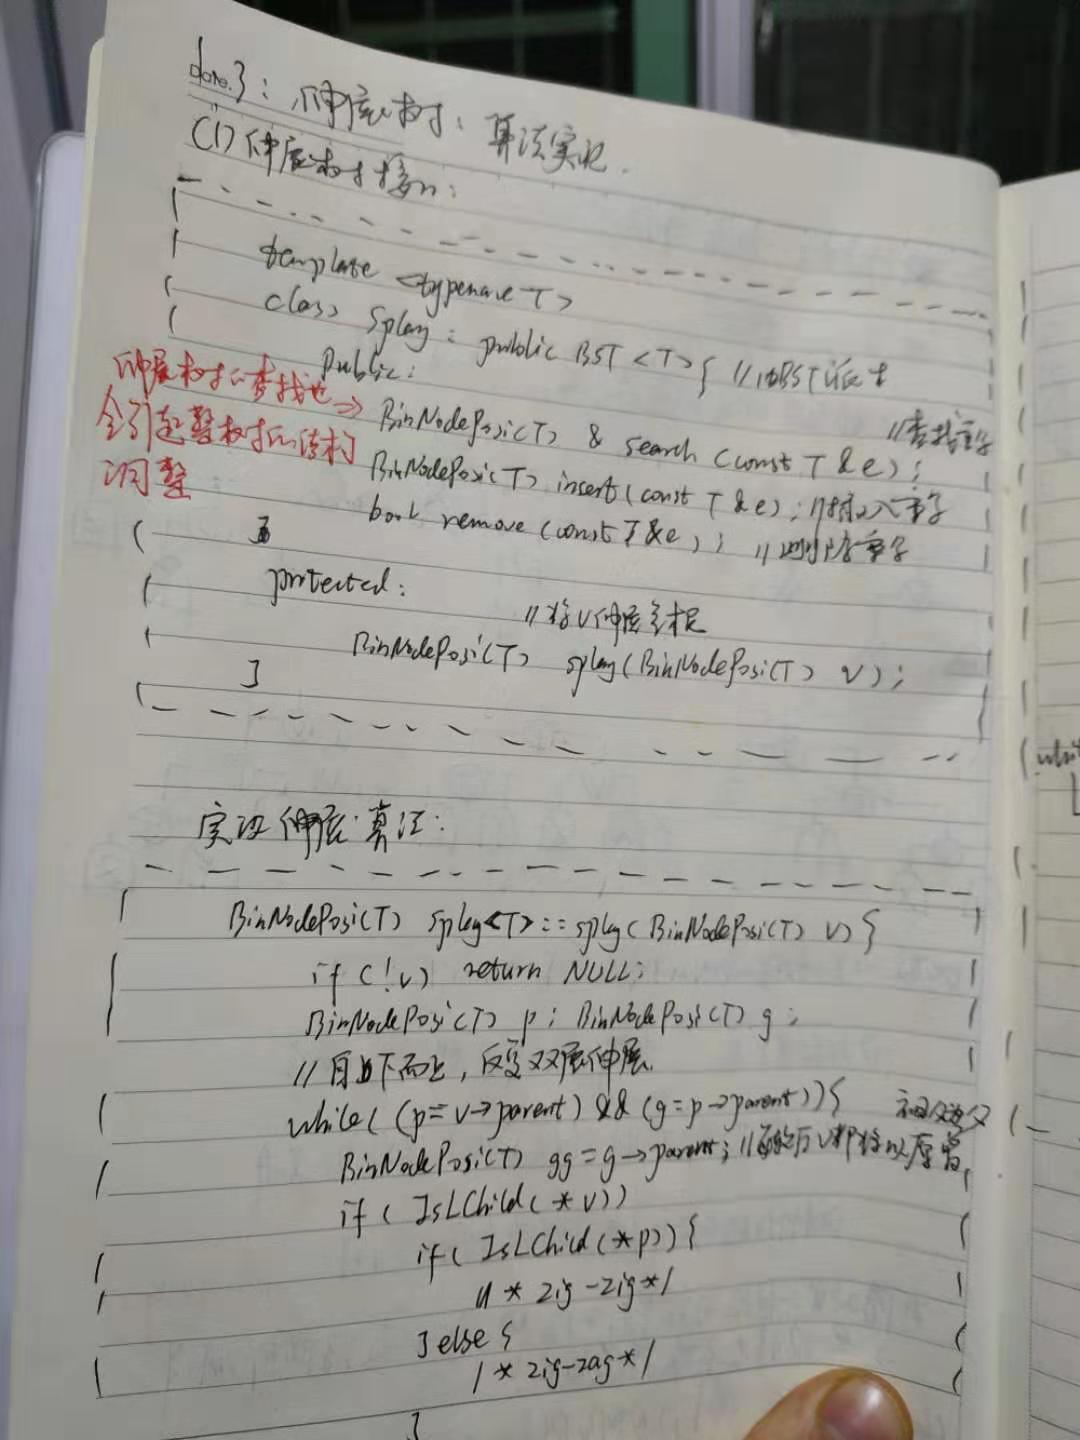 date. 3: 伸展树: 算法实现.
(1) 伸展树接口:
template <typename T>
class Splay : public BST <T> { //由BST派生
public:
伸展树的查找也 =>
会引起整树的结构
调整
//查找重写
BinNodePosi(T) & search (const T & e);
BinNodePosi(T) insert(const T & e); //插入重写
bool remove (const T & e); //删除重写
protected:
//将v伸展至根
BinNodePosi(T) splay(BinNodePosi(T) v);
}
实现伸展算法:
BinNodePosi(T) Splay<T>::splay(BinNodePosi(T) v) {
if (!v) return NULL;
BinNodePosi(T) p; BinNodePosi(T) g;
//自下而上, 反复双层伸展
while( (p = v->parent) && (g = p->parent)) {
BinNodePosi(T) gg = g->parent; //v都将以原曾祖父为父
if ( IsLChild(*v))
if( IsLChild(*p)) {
/* zig-zig */
} else {
/* zig-zag */
}